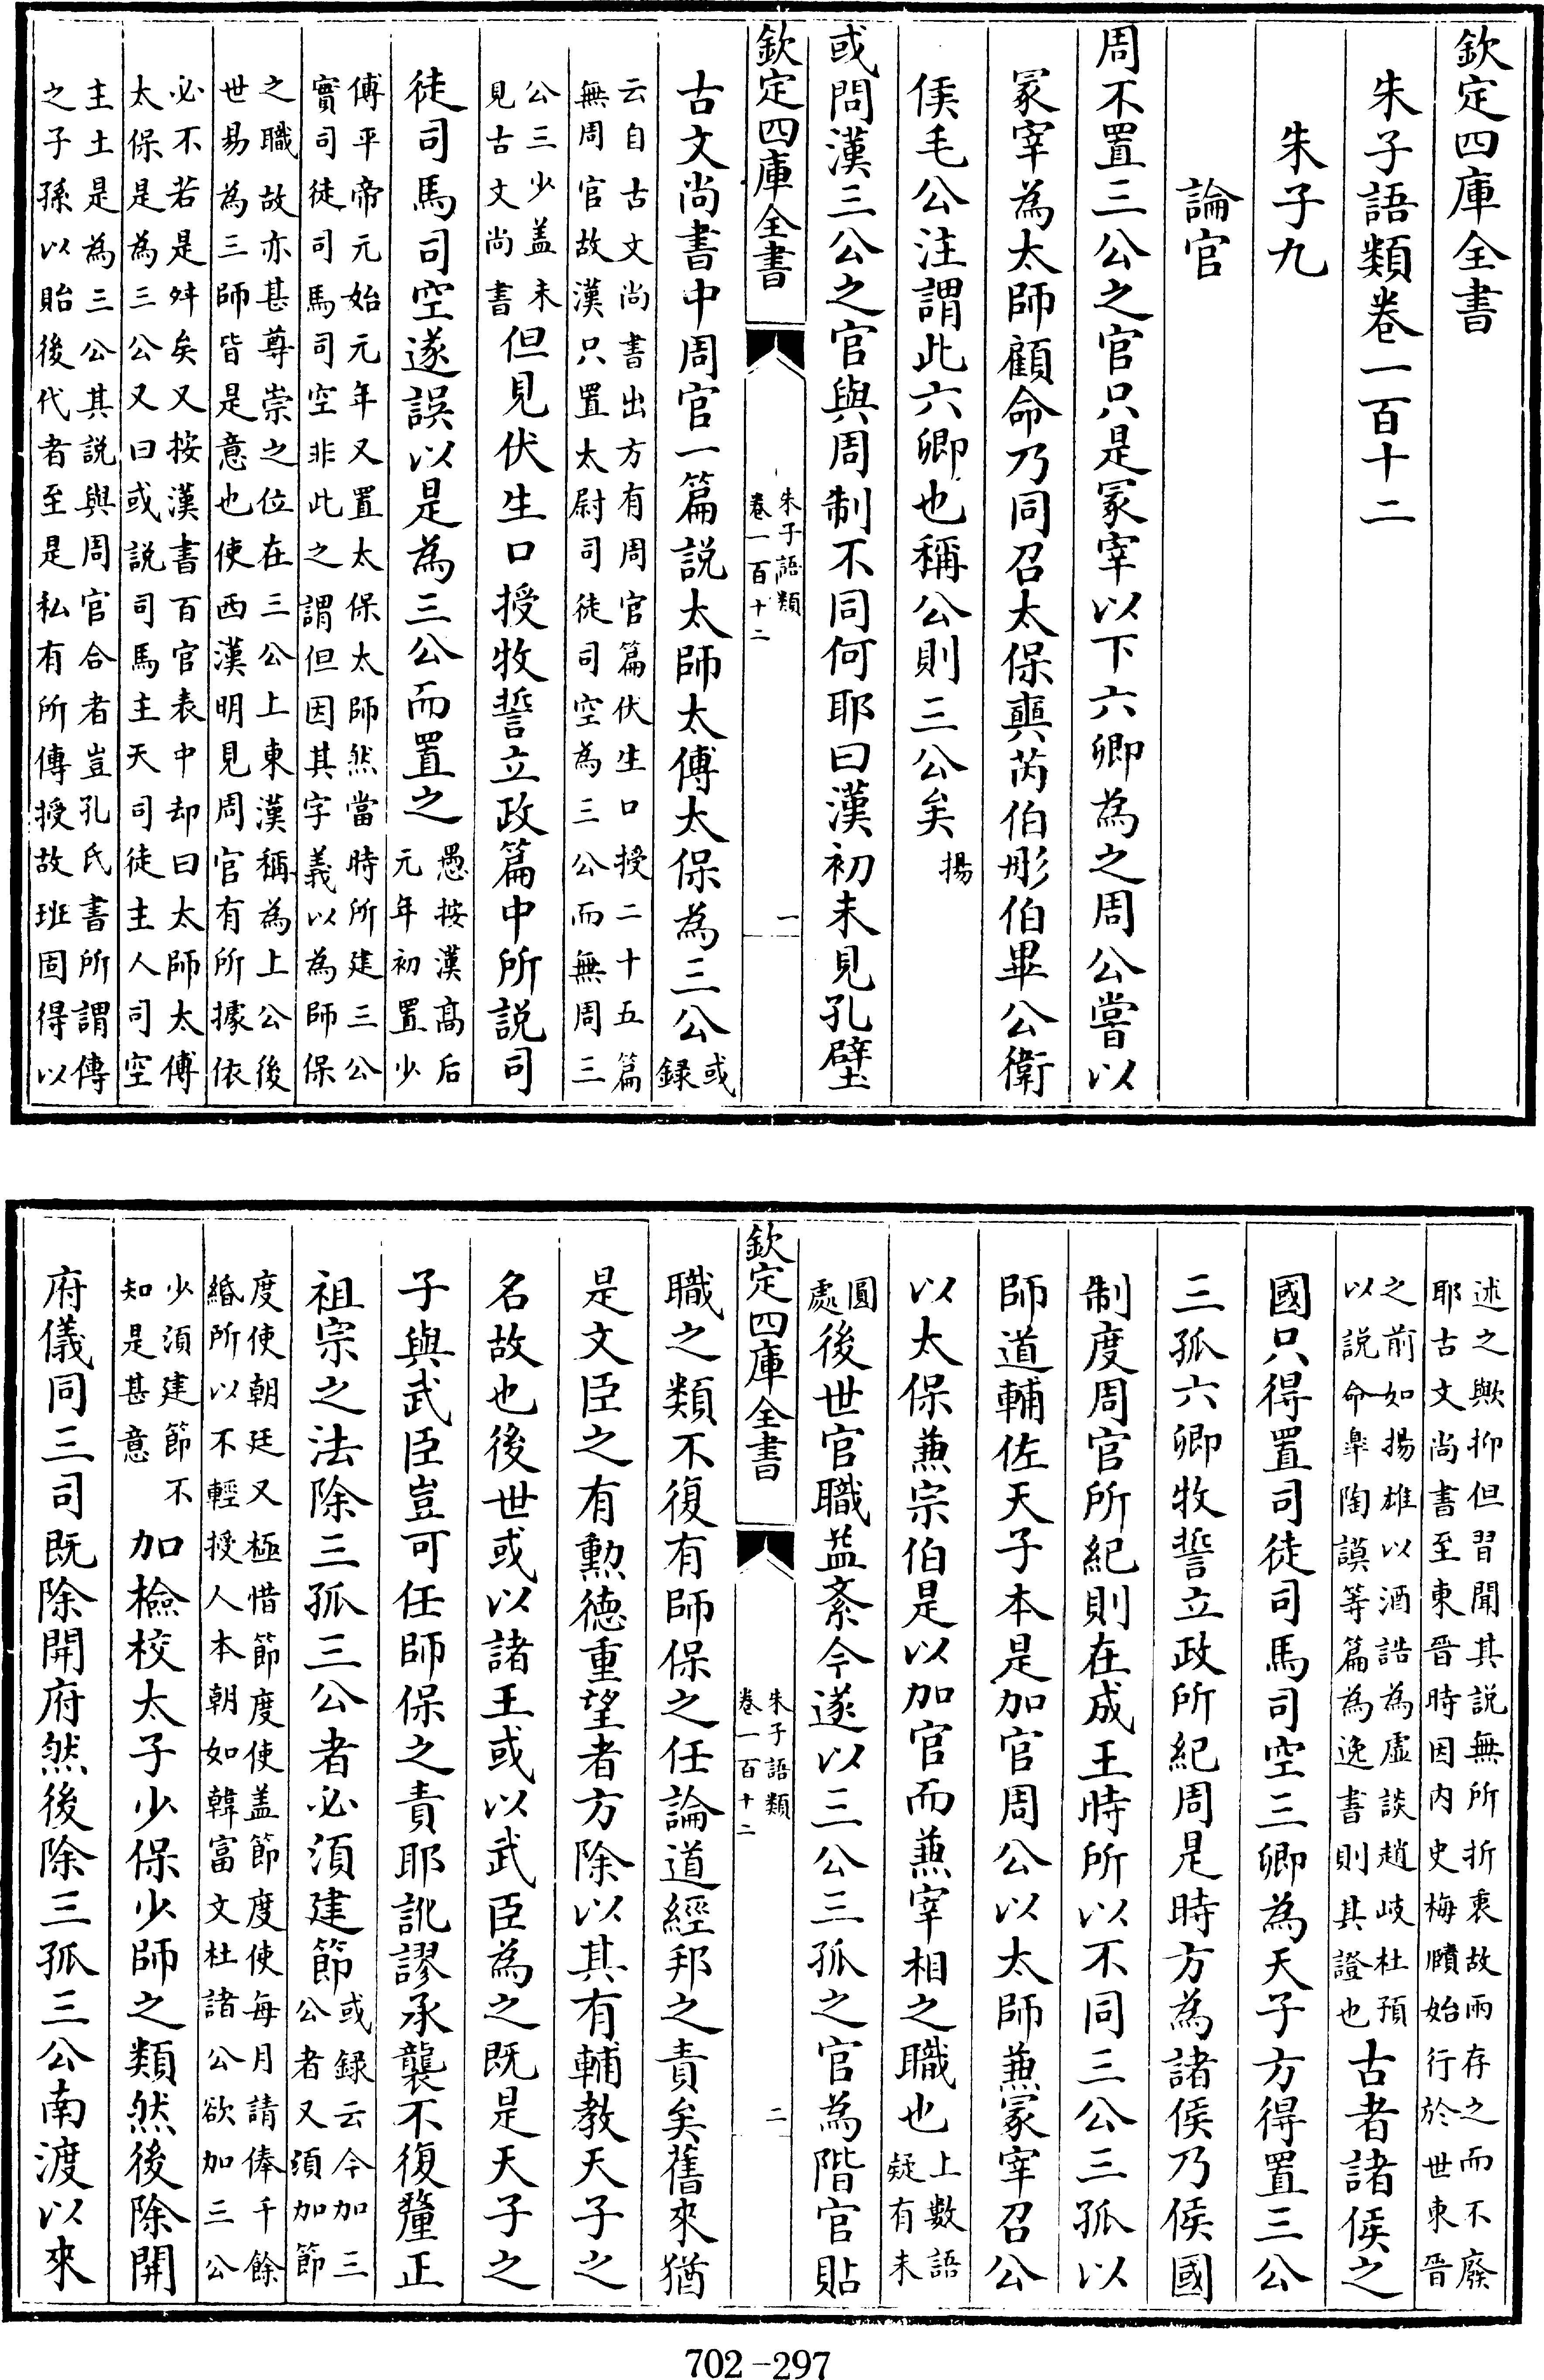 欽定四庫全書
朱子語類卷一百十二
朱子九
論官
周不置三公之官只是冢宰以下六卿為之周公嘗以
冢宰為太師顧命乃同召太保奭芮伯彤伯畢公衛
侯毛公注謂此六卿也稱公則三公矣揚
或問漢三公之官與周制不同何耶曰漢初未見孔壁
欽定四庫全書
朱子語類
卷一百十二
一
古文尚書中周官一篇説太師太傅太保為三公或
録
云自古文尚書出方有周官篇伏生口授二十五篇
無周官故漢只置太尉司徒司空為三公而無周三
公三少盖未
見古文尚書但見伏生口授牧誓立政篇中所説司
徒司馬司空遂誤以是為三公而置之愚按漢髙后
元年初置少
傅平帝元始元年又置太保太師然當時所建三公
實司徒司馬司空非此之謂但因其字義以為師保
之職故亦甚尊崇之位在三公上東漢稱為上公後
世易為三師皆是意也使西漢明見周官有所據依
必不若是舛矣又按漢書百官表中却曰太師太傅
太保是為三公又曰或説司馬主天司徒主人司空
主土是為三公其説與周官合者豈孔氏書所謂傳
之子孫以貽後代者至是私有所傳授故班固得以
述之歟抑但習聞其説無所折衷故兩存之而不廢
耶古文尚書至東晉時因内史梅賾始行於世東晉
之前如揚雄以酒誥為虛談趙岐杜預
以説命臯陶謨等篇為逸書則其證也古者諸侯之
國只得置司徒司馬司空三卿為天子方得置三公
三孤六卿牧誓立政所紀周是時方為諸侯乃侯國
制度周官所紀則在成王時所以不同三公三孤以
師道輔佐天子本是加官周公以太師兼冢宰召公
以太保兼宗伯是以加官而兼宰相之職也上數語
疑有未
圓
處後世官職益紊今遂以三公三孤之官為階官貼
欽定四庫全書
朱子語類
卷一百十二
二
職之類不復有師保之任論道經邦之責矣舊來猶
是文臣之有勲德重望者方除以其有輔教天子之
名故也後世或以諸王或以武臣為之既是天子之
子與武臣豈可任師保之責耶訛謬承襲不復釐正
祖宗之法除三孤三公者必須建節或録云今加三
公者又須加節
度使朝廷又極惜節度使盖節度使每月請俸千餘
緡所以不輕授人本朝如韓富文杜諸公欲加三公
少須建節不
知是甚意加檢校太子少保少師之類然後除開
府儀同三司既除開府然後除三孤三公南渡以來
702-297